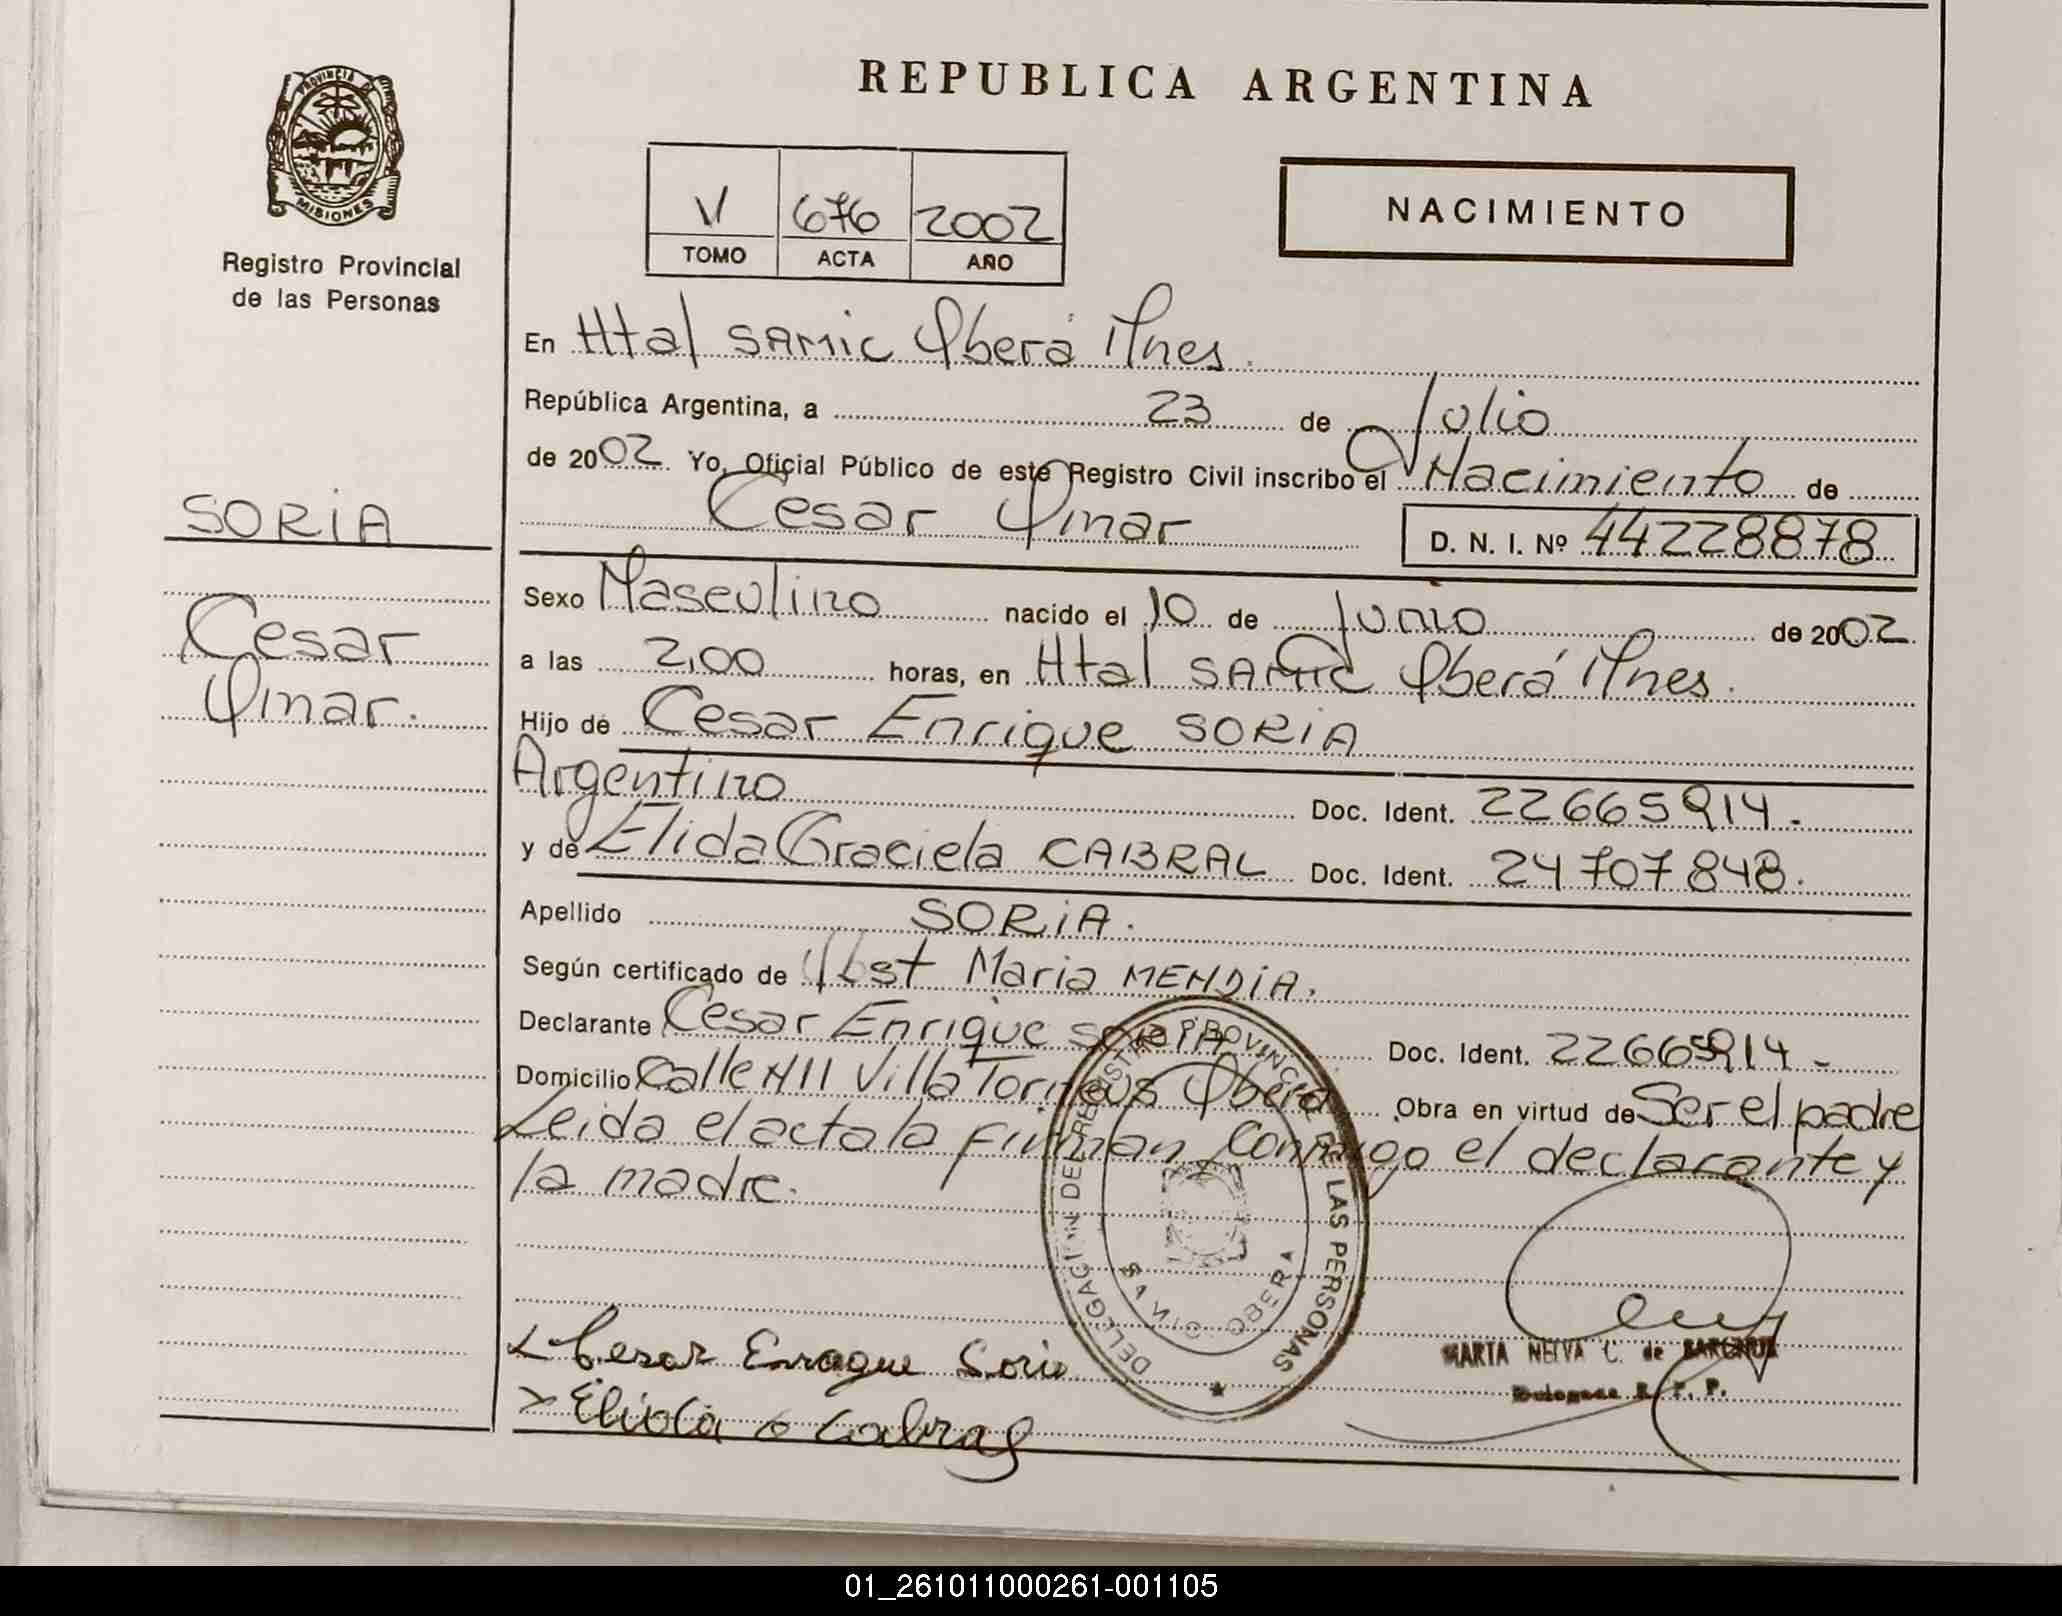 REPUBLICA ARGENTINA
PROVINCIA DE MISIONES
Registro Provincial
de las Personas
V 676 2002
TOMO ACTA AÑO
NACIMIENTO
En Htal SAMIC Oberá Mnes.
República Argentina, a 23 de Julio
de 2002 Yo, Oficial Público de este Registro Civil inscribo el Nacimiento de
Cesar Omar D. N. I. Nº 44228878
SORIA
Cesar
Omar.
Sexo Masculino nacido el 10 de Junio de 2002.
a las 2,00 horas, en Htal SAMIC Oberá Mnes.
Hijo de Cesar Enrique SORIA
Argentino Doc. Ident. 22665914.
y de Elida Graciela CABRAL Doc. Ident. 24707848.
Apellido SORIA.
Según certificado de Obst Maria MENDIA.
Declarante Cesar Enrique SORIA Doc. Ident. 22665914-
Domicilio Calle N11 Villa Oberá Obra en virtud de Ser el padre
Leida el acta la Firman Conmigo el declarante y
la madre.
DELEGACION DEL REGISTRO PROVINCIAL DE LAS PERSONAS
SAMIC - OBERA
Cesar Enrique Soria
Elida G Cabral
MARTA NELVA C. de
Delegada R. P. P.
01_261011000261-001105